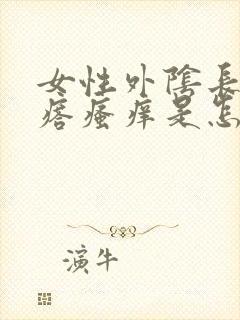 女性外陰長
瘩瘙痒是怎
演牛